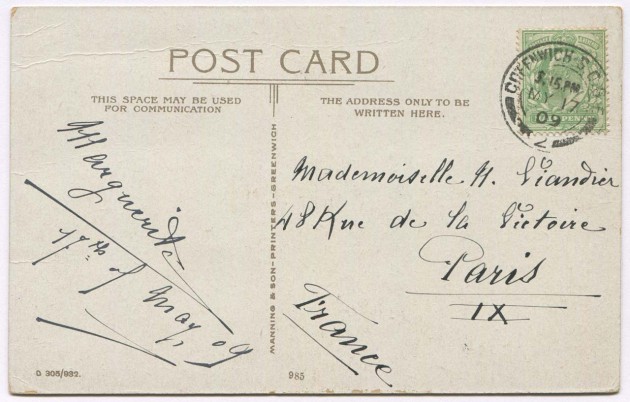 POST CARD
THIS SPACE MAY BE USED
FOR COMMUNICATION
THE ADDRESS ONLY TO BE
WRITTEN HERE.
GREENWICH S.O.S.E
5.15 PM
17
09
2
Marguerite
17th of May, 09
MANNING & SON-PRINTERS-GREENWICH
Mademoiselle H. Viandier
48 Rue de la Victoire
Paris
IX
France
D 305/982.
985